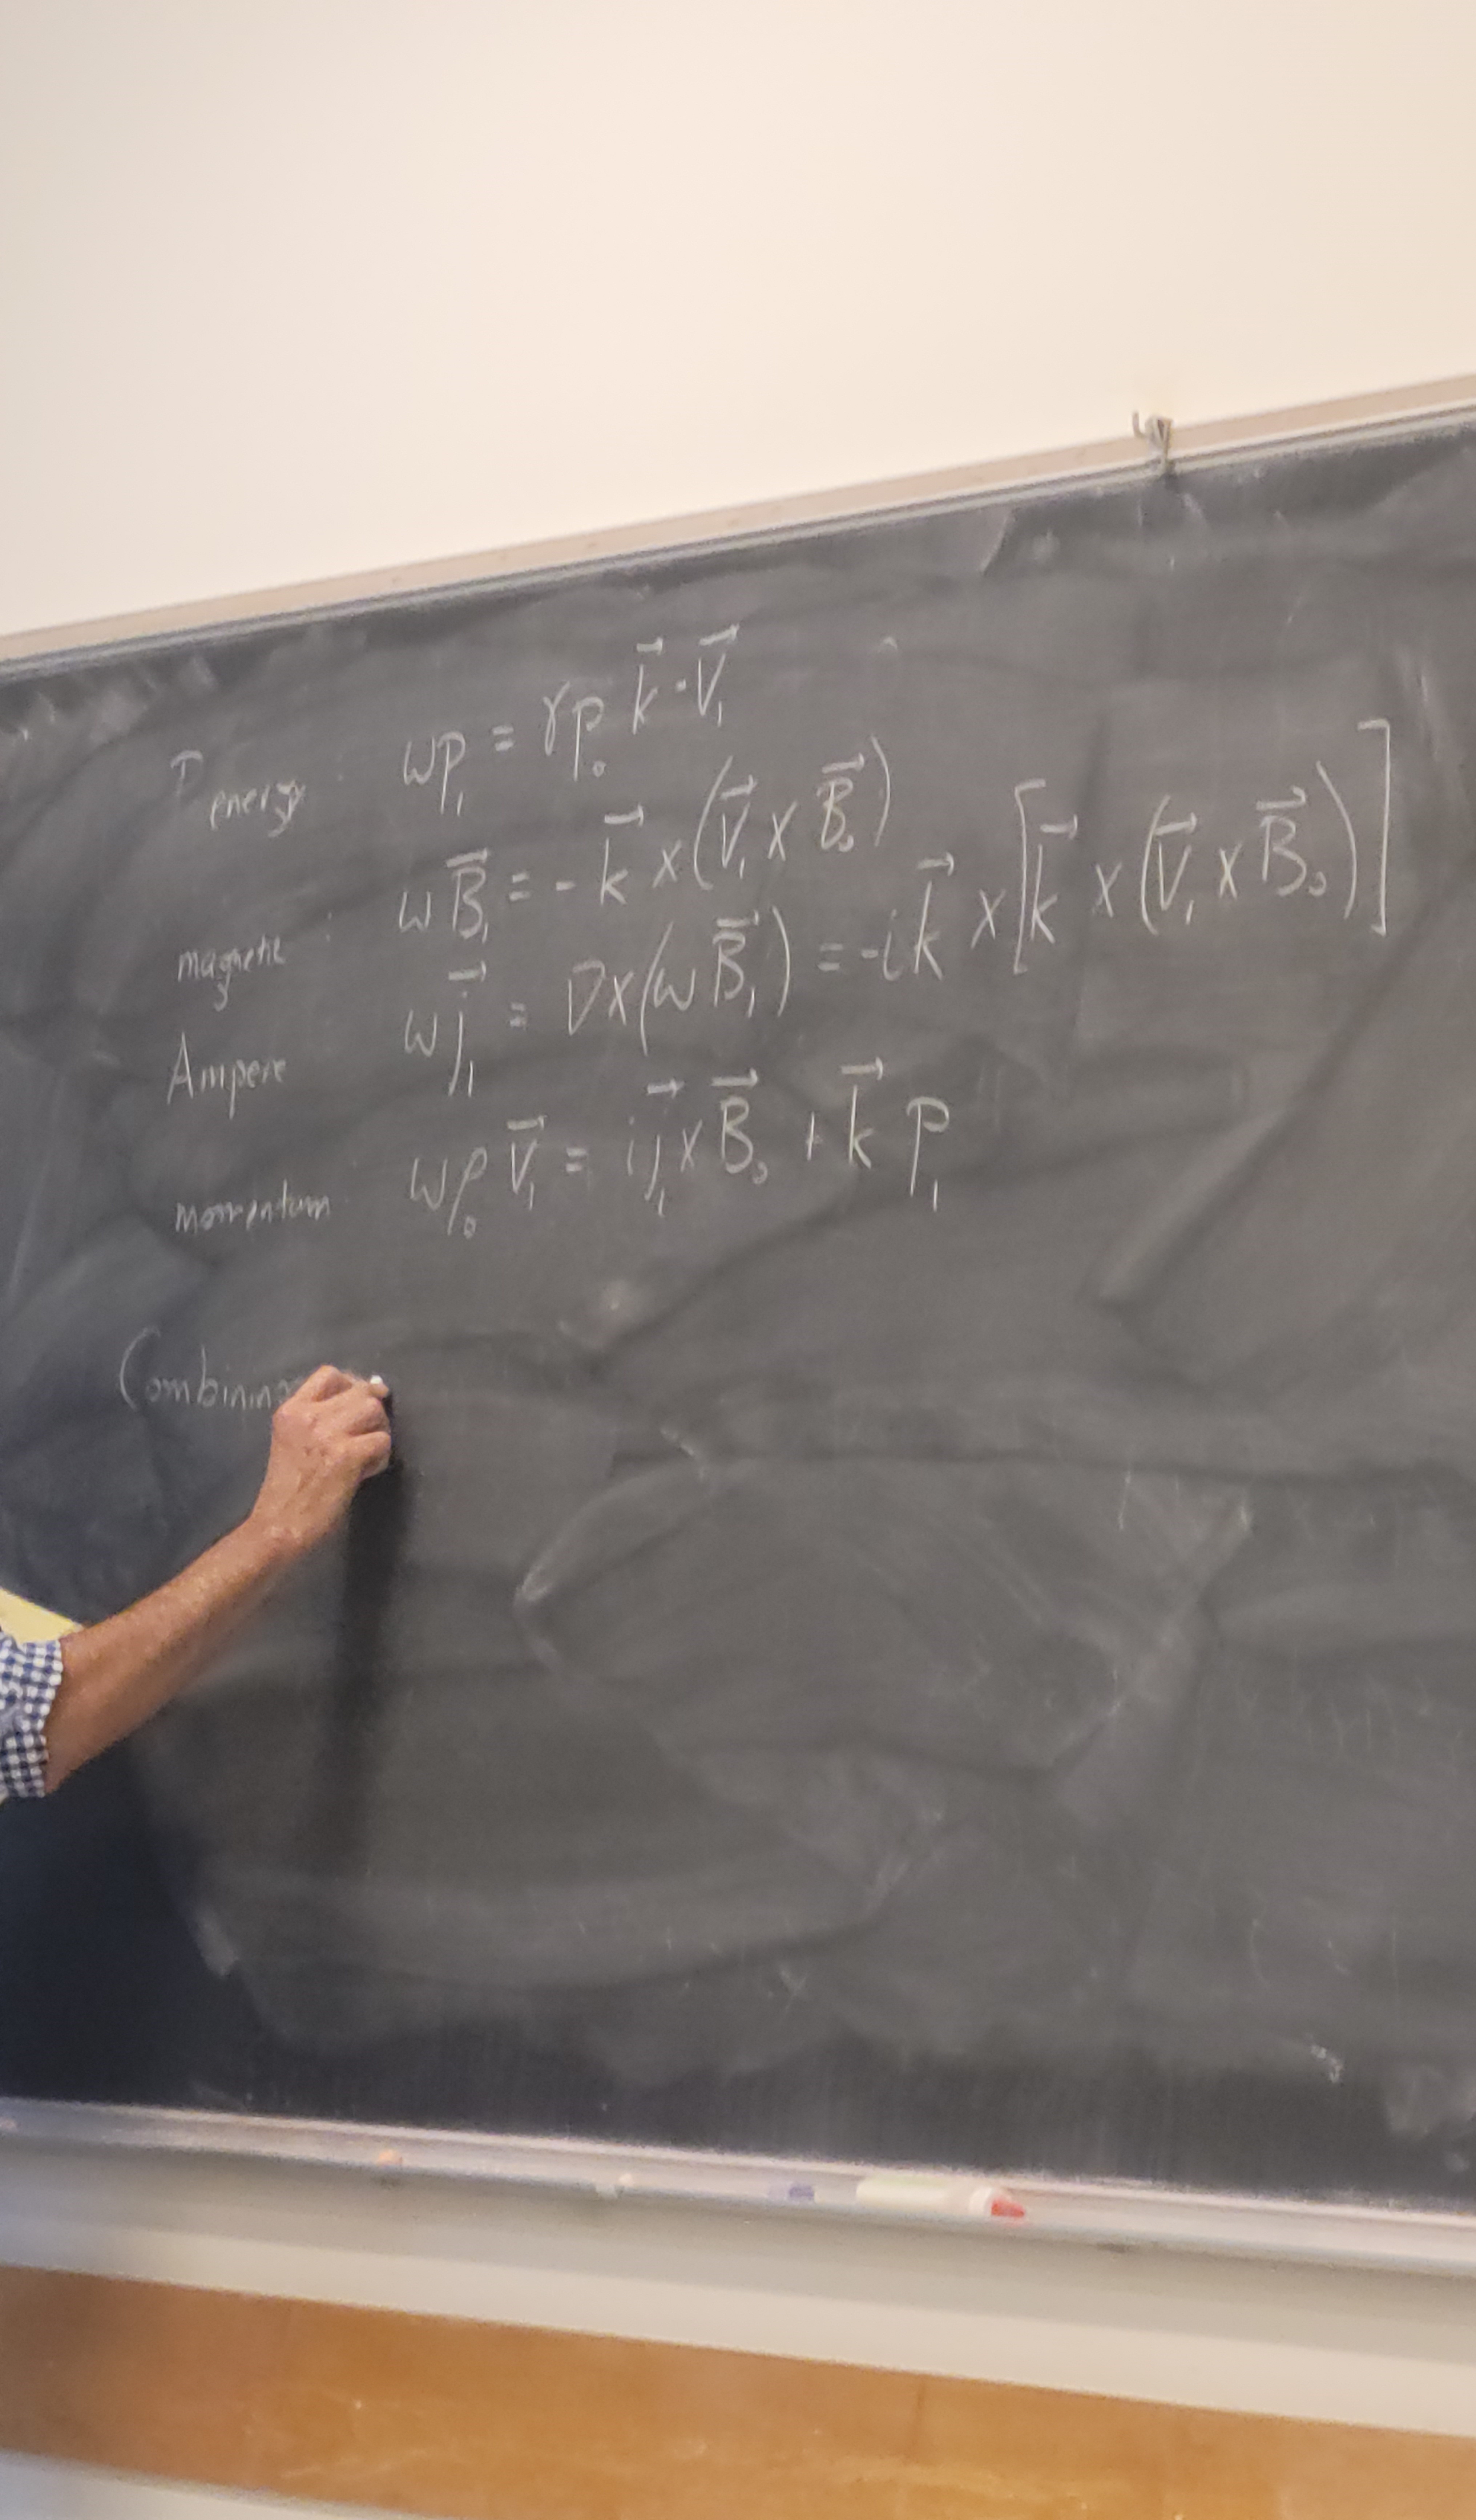 P energy : ωp₁ = γp₀ k⃗ · V⃗₁
magnetic : ωB⃗₁ = - k⃗ × (V⃗₁ × B⃗₀)
Ampere ωj⃗₁ = ∇×(ωB⃗₁) = -i k⃗ × [k⃗ × (V⃗₁ × B⃗₀)]
momentum ωρ₀ V⃗₁ = i j⃗₁ × B⃗₀ + k⃗ p₁
Combining